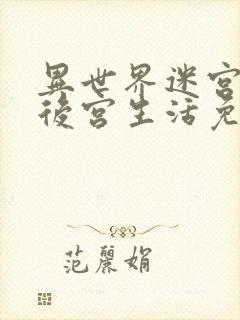 異世界迷宮
後宮生活免
范麗娟